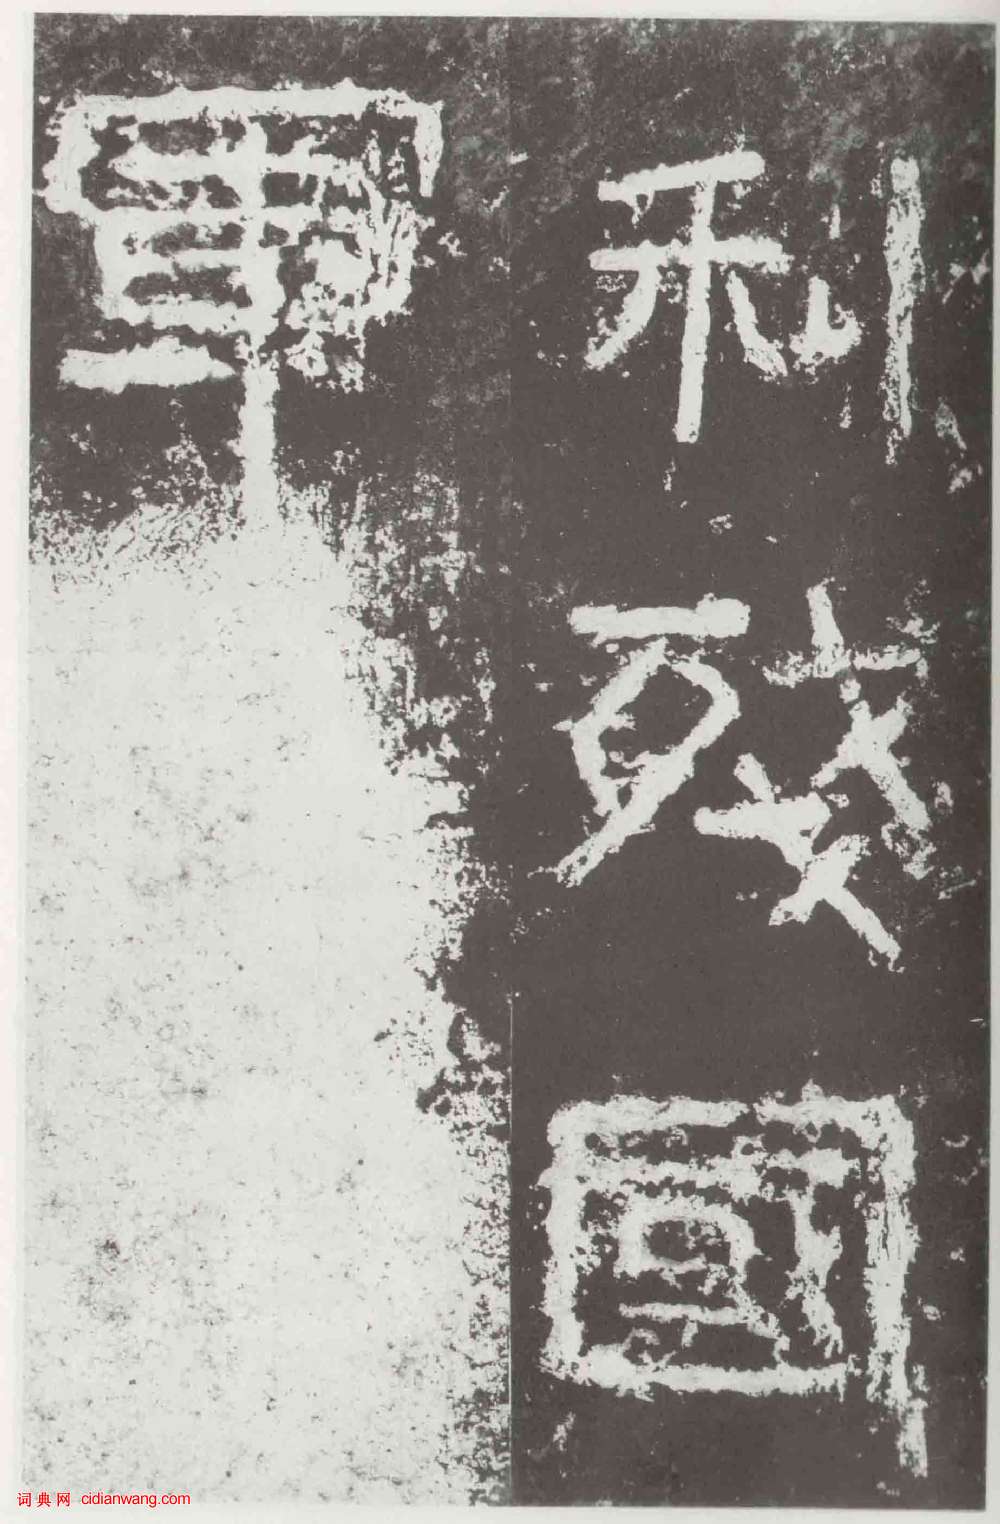 利殘國
軍
词典网 cidianwang.com